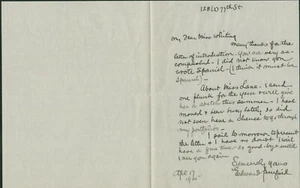 128 W 75th St
My Dear Miss Whiting
Many thanks for the
letter of introduction - You are very ac-
complished - I did not know you
wrote Spanish - (I think it must be
Spanish) -
About Miss Lane - I send
one plunk for the year
this summer - I have
moved & been busy lately, so did
not even have a chance to go through
my portfolios -
I sail to-morrow, to present
the letter & I have no doubt I will
have a fine time - So good-bye & until
I see you again
Sincerely yours
Edward
Apr 17